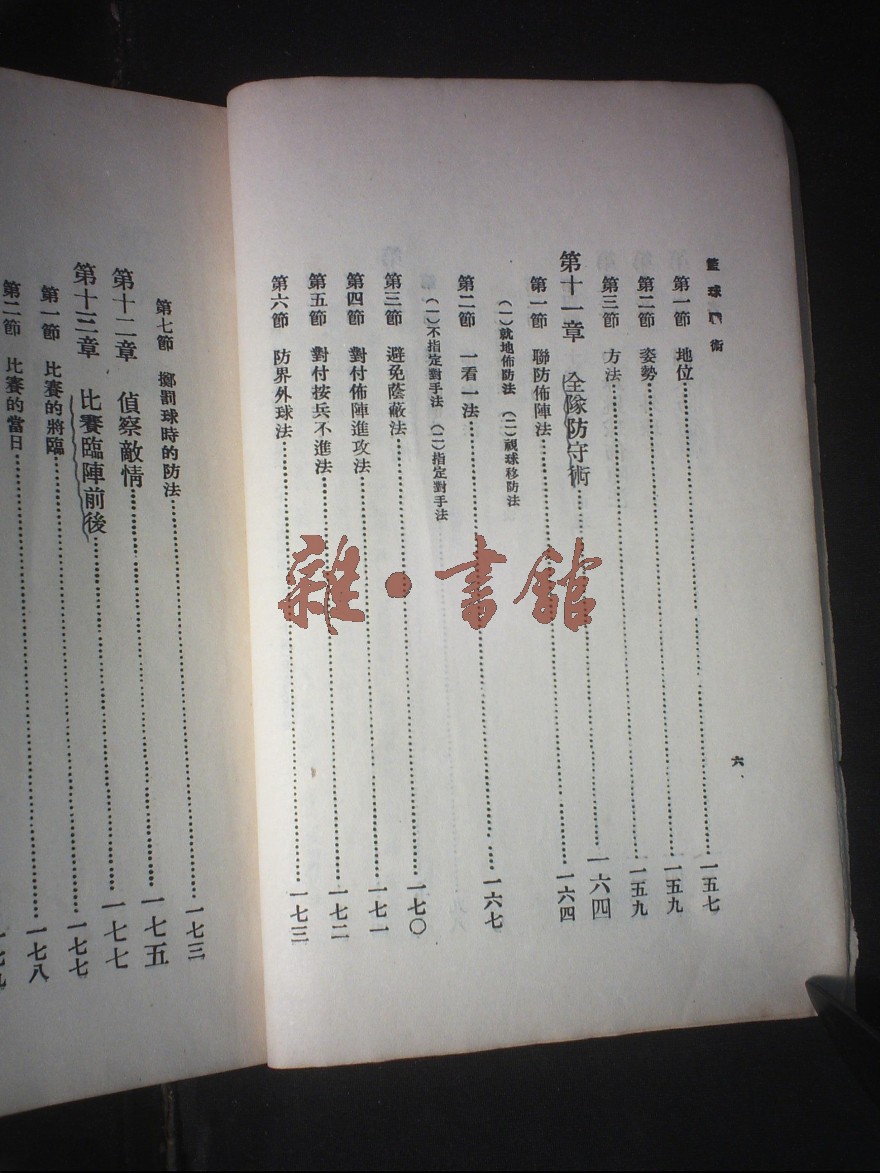 籃球戰術
六
第一節 地位……一五七
第二節 姿勢……一五九
第三節 方法……一五九
第十一章 全隊防守術……一六四
第一節 聯防佈陣法……一六四
(一)就地佈防法 (二)視球移防法
第二節 一看一法……一六七
(一)不指定對手法 (二)指定對手法
第三節 避免蔭蔽法……一七〇
第四節 對付佈陣進攻法……一七一
第五節 對付按兵不進法……一七二
第六節 防界外球法……一七三
第七節 擲罰球時的防法……一七三
第十二章 偵察敵情……一七五
第十三章 比賽臨陣前後……一七七
第一節 比賽的將臨……一七七
第二節 比賽的當日……一七八
雜·書館